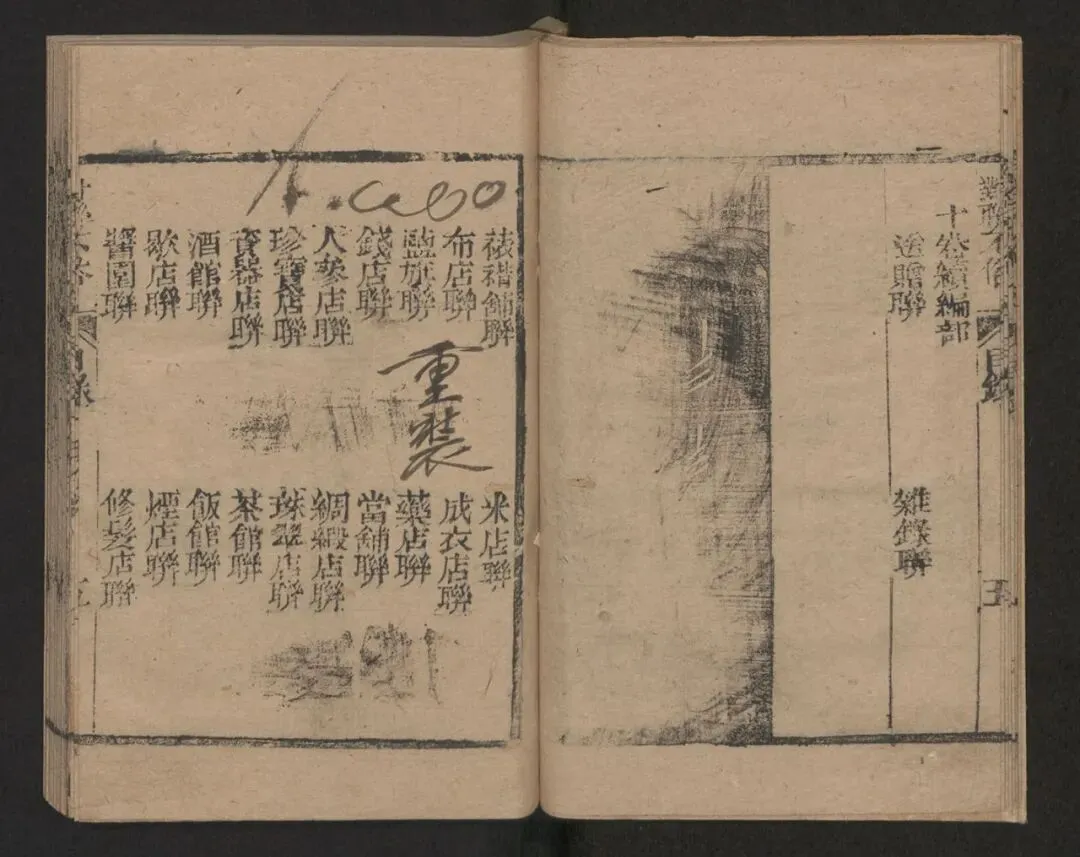 十卷續編部
送贈聯
雜錄聯
目錄
五
裱褙舖聯
布店聯
鹽旗聯
錢店聯
人參店聯
珍寶店聯
瓷器店聯
酒館聯
歇店聯
醬園聯
重裝
米店聯
成衣店聯
藥店聯
當舖聯
綢緞店聯
珠翠店聯
茶館聯
飯館聯
煙店聯
修髮店聯
目錄